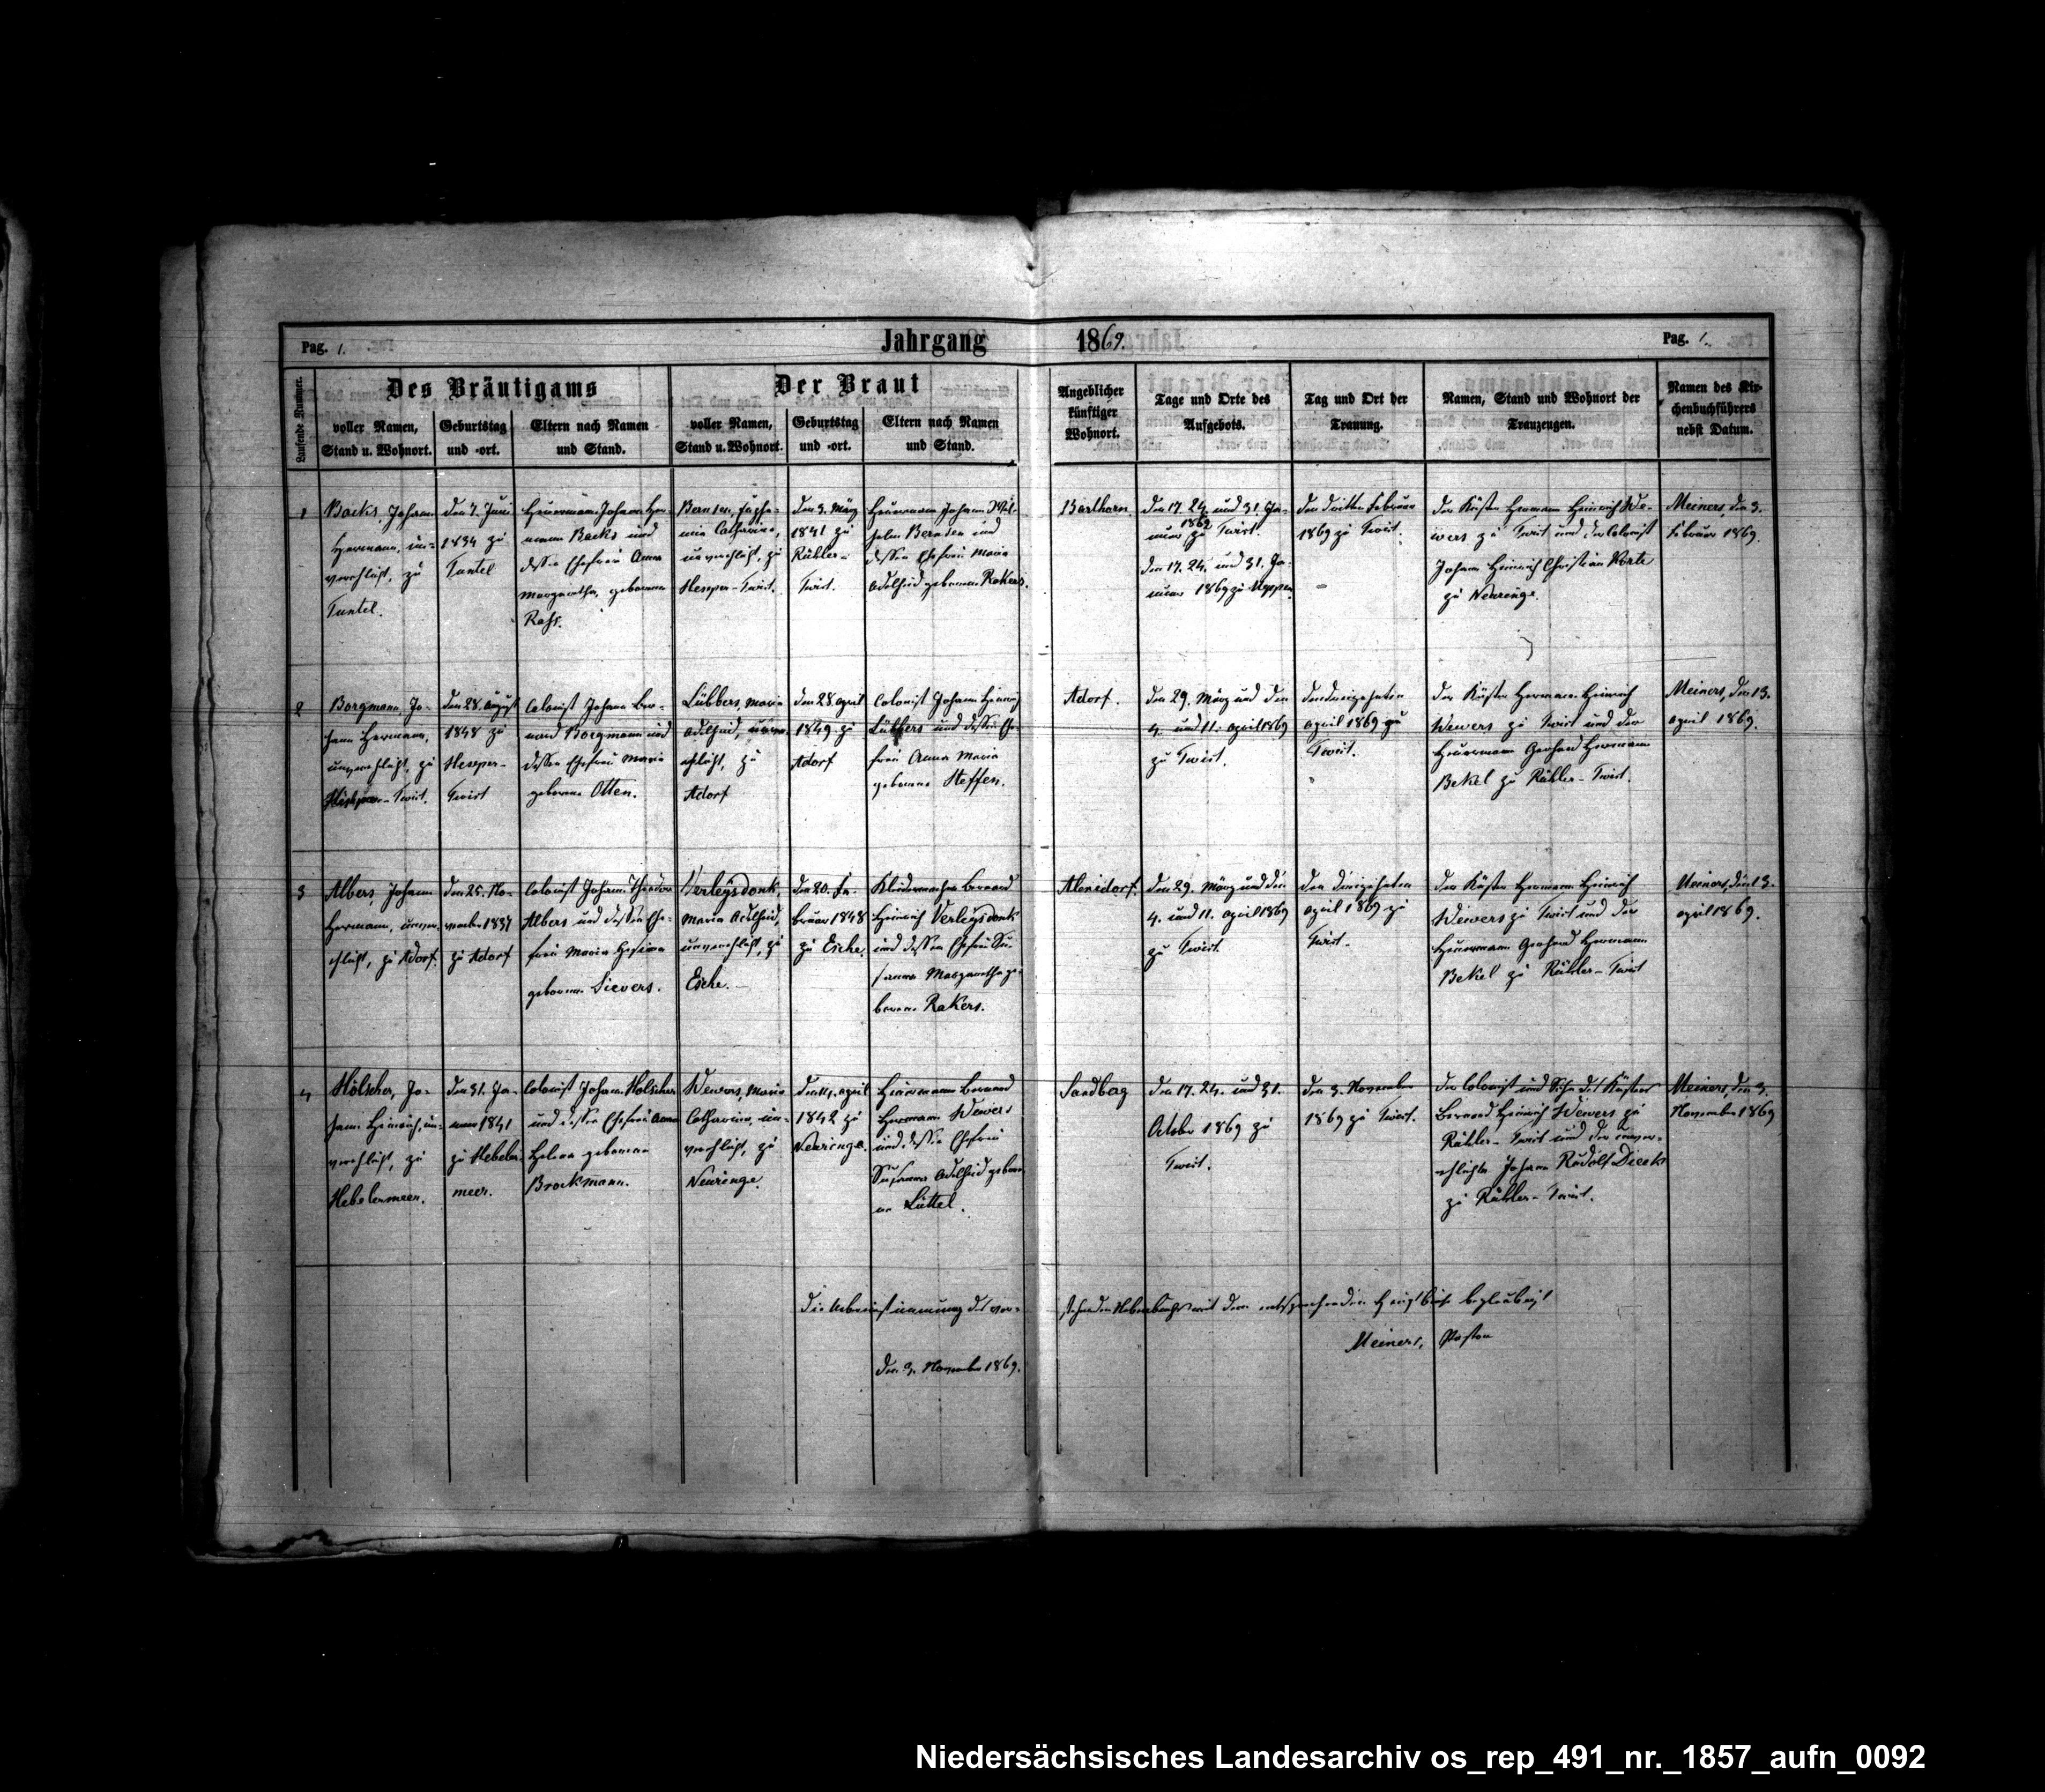 Pag. 1.
Jahrgang 1869.
Pag. 1.
Laufende Nummer.
Des Bräutigams
voller Namen,
Stand u. Wohnort.
Geburtstag
und -ort.
Eltern nach Namen
und Stand.
Der Braut
voller Namen,
Stand u. Wohnort.
Geburtstag
und -ort.
Eltern nach Namen
und Stand.
Angeblicher
künftiger
Wohnort.
Tage und Orte des
Aufgebots.
Tag und Ort der
Trauung.
Namen, Stand und Wohnort der
Trauzeugen.
Namen des Kir-
chenbuchführers
nebst Datum.
1
Backs, Johann
Hermann, un-
verehlicht, zu
Tuntel.
den 7. Juni
1834 zu
Tuntel
Heuermann Johann Her-
mann Backs und
dessen Ehefrau Anna
Margaretha, geborene
Rass.
Bernsen, Euphe-
mia Catharina,
unverehlicht, zu
Hesper-Twist.
den 3. März
1841 zu
Rühler-
Twist.
Heuermann Johann Wil-
helm Bernsen und
dessen Ehefrau Maria
Adelheid geborene Rakers.
Barthorn.
den 17. 24. und 31. Ja-
nuar 1869 zu Twist.
den 17. 24. und 31. Ja-
nuar 1869 zu Meppen.
den dritten Februar
1869 zu Twist.
der Küster Hermann Heinrich We-
wers zu Twist und der Colonist
Johann Heinrich Christian Korte
zu Neuringe.
Meiners, den 3.
Februar 1869.
2
Borgmann, Jo-
hann Hermann,
unverehlicht, zu
Hesper-Twist.
den 28. August
1848 zu
Hesper-
Twist
Colonist Johann Ber-
nard Borgmann und
dessen Ehefrau Maria
geborene Otten.
Lübbers, Maria
Adelheid, unver-
ehlicht, zu
Adorf
den 28. April
1849 zu
Adorf
Colonist Johann Heinrich
Lübbers und dessen Ehe-
frau Anna Maria
geborene Steffen.
Adorf.
den 29. März und den
4. und 11. April 1869
zu Twist.
den dreizehnten
April 1869 zu
Twist.
der Küster Hermann Heinrich
Wewers zu Twist und der
Heuermann Gerhard Hermann
Bekel zu Rühler-Twist.
Meiners, den 13.
April 1869.
3
Albers, Johann
Hermann, unver-
ehlicht, zu Adorf.
den 25. No-
vember 1837
zu Adorf
Colonist Johann Theodor
Albers und dessen Ehe-
frau Maria Gesina
geborene Sievers.
Verleysdonk,
Maria Adelheid,
unverehlicht, zu
Esche.
den 20. Fe-
bruar 1848
zu Esche.
Kleidermacher Bernard
Heinrich Verleysdonk
und dessen Ehefrau Su-
sanna Margaretha ge-
borene Rakers.
den 29. März und den
4. und 11. April 1869
zu Twist.
den dreizehnten
April 1869 zu
Twist.
der Küster Hermann Heinrich
Wewers zu Twist und der
Heuermann Gerhard Hermann
Bekel zu Rühler-Twist
Meiners, den 13.
April 1869.
4
Hölscher, Jo-
hann Heinrich, un-
verehlicht, zu
Hebelermeer.
den 31. Ja-
nuar 1841
zu Hebeler-
meer.
Colonist Johann Hölscher
und dessen Ehefrau Anna
Helena geborene
Brockmann.
Wewers, Maria
Catharina, un-
verehlicht, zu
Neuringe.
den 14. April
1842 zu
Neuringe.
Heuermann Bernard
Hermann Wewers
und dessen Ehefrau
Susanna Adelheid gebore-
ne Lüttel.
den 17. 24. und 31.
October 1869 zu
Twist.
den 3. November
1869 zu Twist.
der Colonist und Sohn des Küsters
Bernard Heinrich Wewers zu
Rühler-Twist und der unver-
ehlichte Johann Rudolf Dierks
zu Rühler-Twist.
Meiners, den 3.
November 1869
Die Uebereinstimmung des vor-
stehenden Nebenbuchs mit dem entsprechenden Hauptbuche beglaubigt
den 3. November 1869.
Meiners, Pastor
Niedersächsisches Landesarchiv os_rep_491_nr._1857_aufn_0092